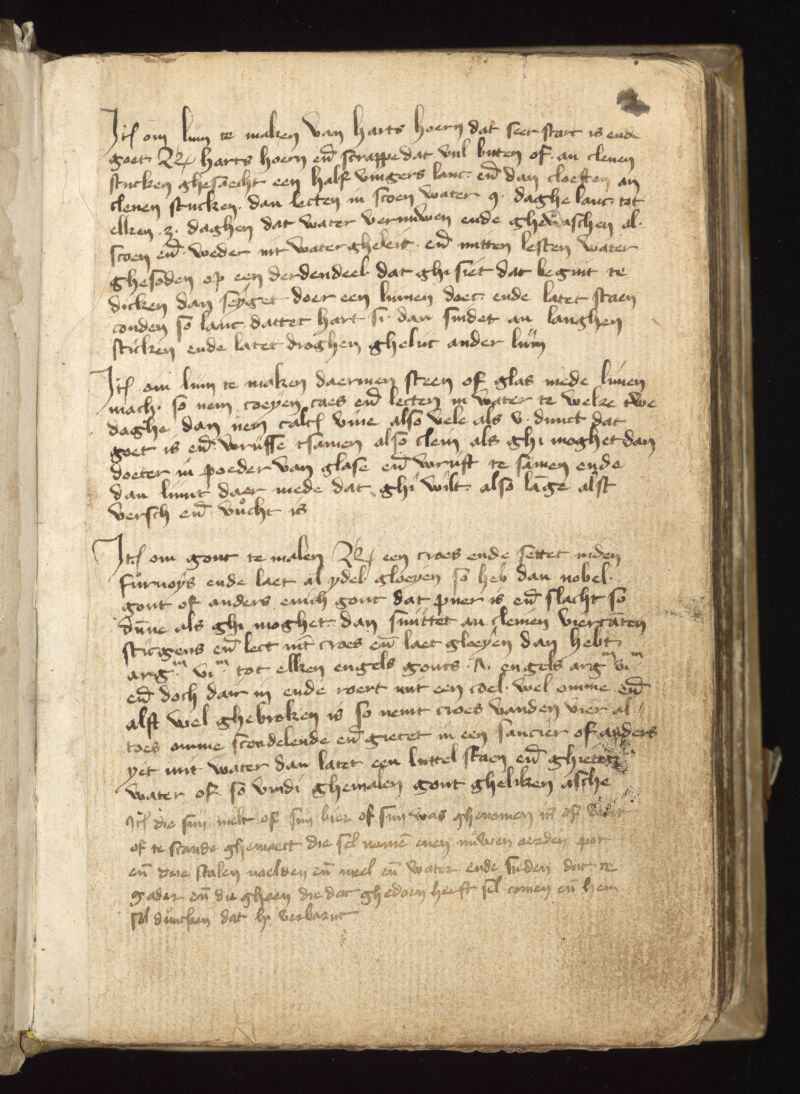 Itē om lijm te maken van harts hoern dat seer starc is ende
goet Rx harts hoern en̄ scrappe dat vul buten of. an clenen
stucken ghesaecht een half vingers lanc. en̄ dan cloeften an
clenen stucken. dan lecten in scoen water 9. daghe lanc. tot
elken .3. daghen dat water vernuwen ende ghewasschen al.
scoen en̄ weder int water gheleit. en̄ mitten lesten water
ghesoden op een derdendeel. dat ghi siet dat begint te
dicken dan seyget doer een linnen doec. ende latet staen
couden so lanc dattet hart si. dan snidet an langhen
sticken ende latet droghen gheliic ander lijm
Itē om lijm te maken daermen steen of glas mede limen
mach. so nem coeyen caes en̄ lecten in water te weike twe
daghe dan nem calcē vive also vele als v. dunct dat
goet is en̄ wriifse tsamen also clein als ghi moghet dan
doeter in poeder van glase en̄ wrijft te samen ende
dan limt daer mede dat ghi wilt. also lāge alst
versch en̄ vůcht is
Itē om gout te malen Rx een croes ende settet inden
furnoys ende laet al ydel gloeyen so heb dan nobel.
gout of anders enich gout dat puer is en̄ slacht so
dūne als ghi moghet. dan snittet an cleinen viercāten
sticgens en̄ lect int croes en̄ laet gloeyen dan hebt
arg.m vi.m tot elken engels gouts. en̄ engels arg.m vi.m
en̄ doch daer in ende roert mit een coel. wel omme en̄
alst wel ghebroken is so nemt croes vanden vier al
toes omme scoedelende en̄ gietet in een saucier of anders
yet mit water dan latet een luttel staen en̄ ghietet
water of. so vindi ghemalen gout gheliken asche
Itē die sijn melc of sijn bier of sijn was ghenomen is of
of te scande ghemaect die sel nemē enen nuwen aerden pot
en̄ drie stalen naelden en̄ meel en̄ water ende sieden dat te
gader en̄ die gheen die dat ghedaen heeft sel comen en̄ hem
sel duncken dat hi verbarnt